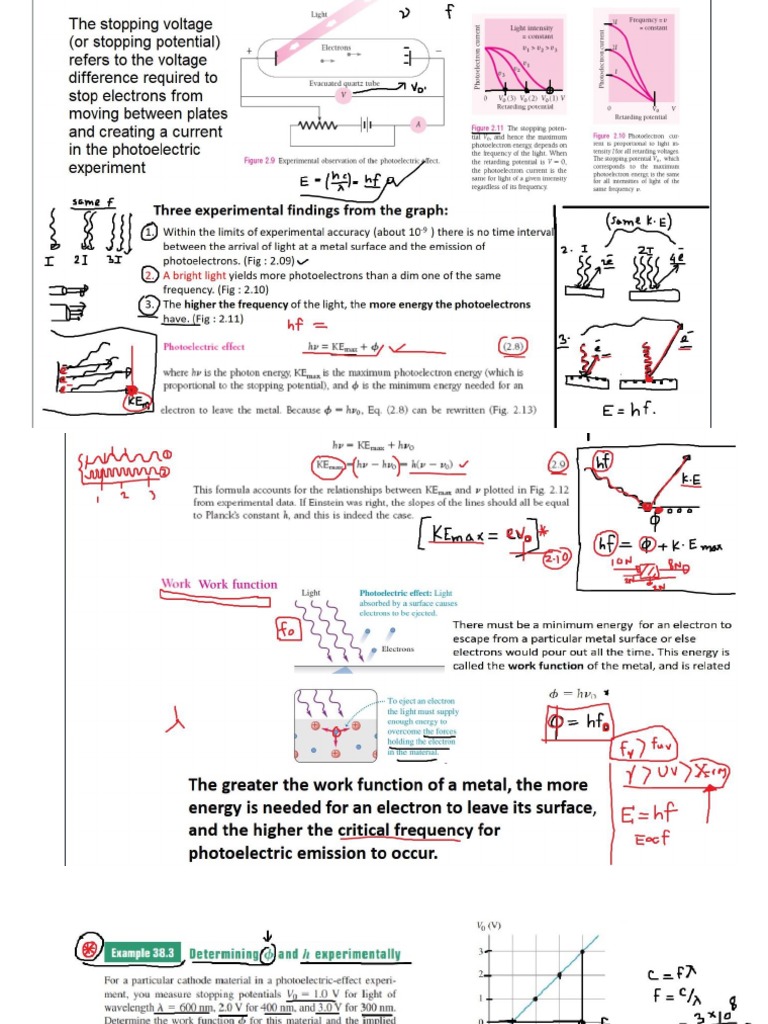 The stopping voltage
(or stopping potential)
refers to the voltage
difference required to
stop electrons from
moving between plates
and creating a current
in the photoelectric
experiment
Light
ν f
Electrons
+
−
Evacuated quartz tube
V
V₀.
A
Figure 2.9 Experimental observation of the photoelectric effect.
E = (hc/λ) = hf
Photoelectron current
Light intensity
= constant
ν₁ > ν₂ > ν₃
ν₃
ν₂
ν₁
0 V₀(3) V₀(2) V₀(1) V
Retarding potential
Figure 2.11 The stopping poten-
tial V₀, and hence the maximum
photoelectron energy, depends on
the frequency of the light. When
the retarding potential is V = 0,
the photoelectron current is the
same for light of a given intensity
regardless of its frequency.
Photoelectron current
Frequency = ν
= constant
3I
2I
I
0 V₀ V
Retarding potential
Figure 2.10 Photoelectron cur-
rent is proportional to light in-
tensity I for all retarding voltages.
The stopping potential V₀, which
corresponds to the maximum
photoelectron energy, is the same
for all intensities of light of the
same frequency ν.
same f
I 2I 3I
Three experimental findings from the graph:
1. Within the limits of experimental accuracy (about 10⁻⁹ ) there is no time interval
between the arrival of light at a metal surface and the emission of
photoelectrons. (Fig : 2.09)
2. A bright light yields more photoelectrons than a dim one of the same
frequency. (Fig : 2.10)
3. The higher the frequency of the light, the more energy the photoelectrons
have. (Fig : 2.11)
hf =
(Same K.E)
2. I 2I
2ē 4ē
3.
ē ē
E = hf.
KEm
Photoelectric effect hν = KEmax + ϕ (2.8)
where hν is the photon energy, KEmax is the maximum photoelectron energy (which is
proportional to the stopping potential), and ϕ is the minimum energy needed for an
electron to leave the metal. Because ϕ = hν₀, Eq. (2.8) can be rewritten (Fig. 2.13)
1 2 3
hν = KEmax + hν₀
KEmax = hν − hν₀ = h(ν − ν₀) (2.9)
This formula accounts for the relationships between KEmax and ν plotted in Fig. 2.12
from experimental data. If Einstein was right, the slopes of the lines should all be equal
to Planck's constant h, and this is indeed the case.
[KEmax = eV₀]*
2.10
hf
K.E
Φ
hf = Φ + K.Emax
10N 8N
2N
Work Work function
Light
f₀
Electrons
Photoelectric effect: Light
absorbed by a surface causes
electrons to be ejected.
There must be a minimum energy for an electron to
escape from a particular metal surface or else
electrons would pour out all the time. This energy is
called the work function of the metal, and is related
To eject an electron
the light must supply
enough energy to
overcome the forces
holding the electron
in the material.
ϕ = hν₀ *
Φ = hf₀
λ
fγ > fuv
γ > UV > X
E = hf
E∝f
The greater the work function of a metal, the more
energy is needed for an electron to leave its surface,
and the higher the critical frequency for
photoelectric emission to occur.
Example 38.3 Determining ϕ and h experimentally
For a particular cathode material in a photoelectric-effect experi-
ment, you measure stopping potentials V₀ = 1.0 V for light of
wavelength λ = 600 nm, 2.0 V for 400 nm, and 3.0 V for 300 nm.
Determine the work function ϕ for this material and the implied
V₀ (V)
3
2
1
0
c = fλ
f = c/λ
3×10⁸